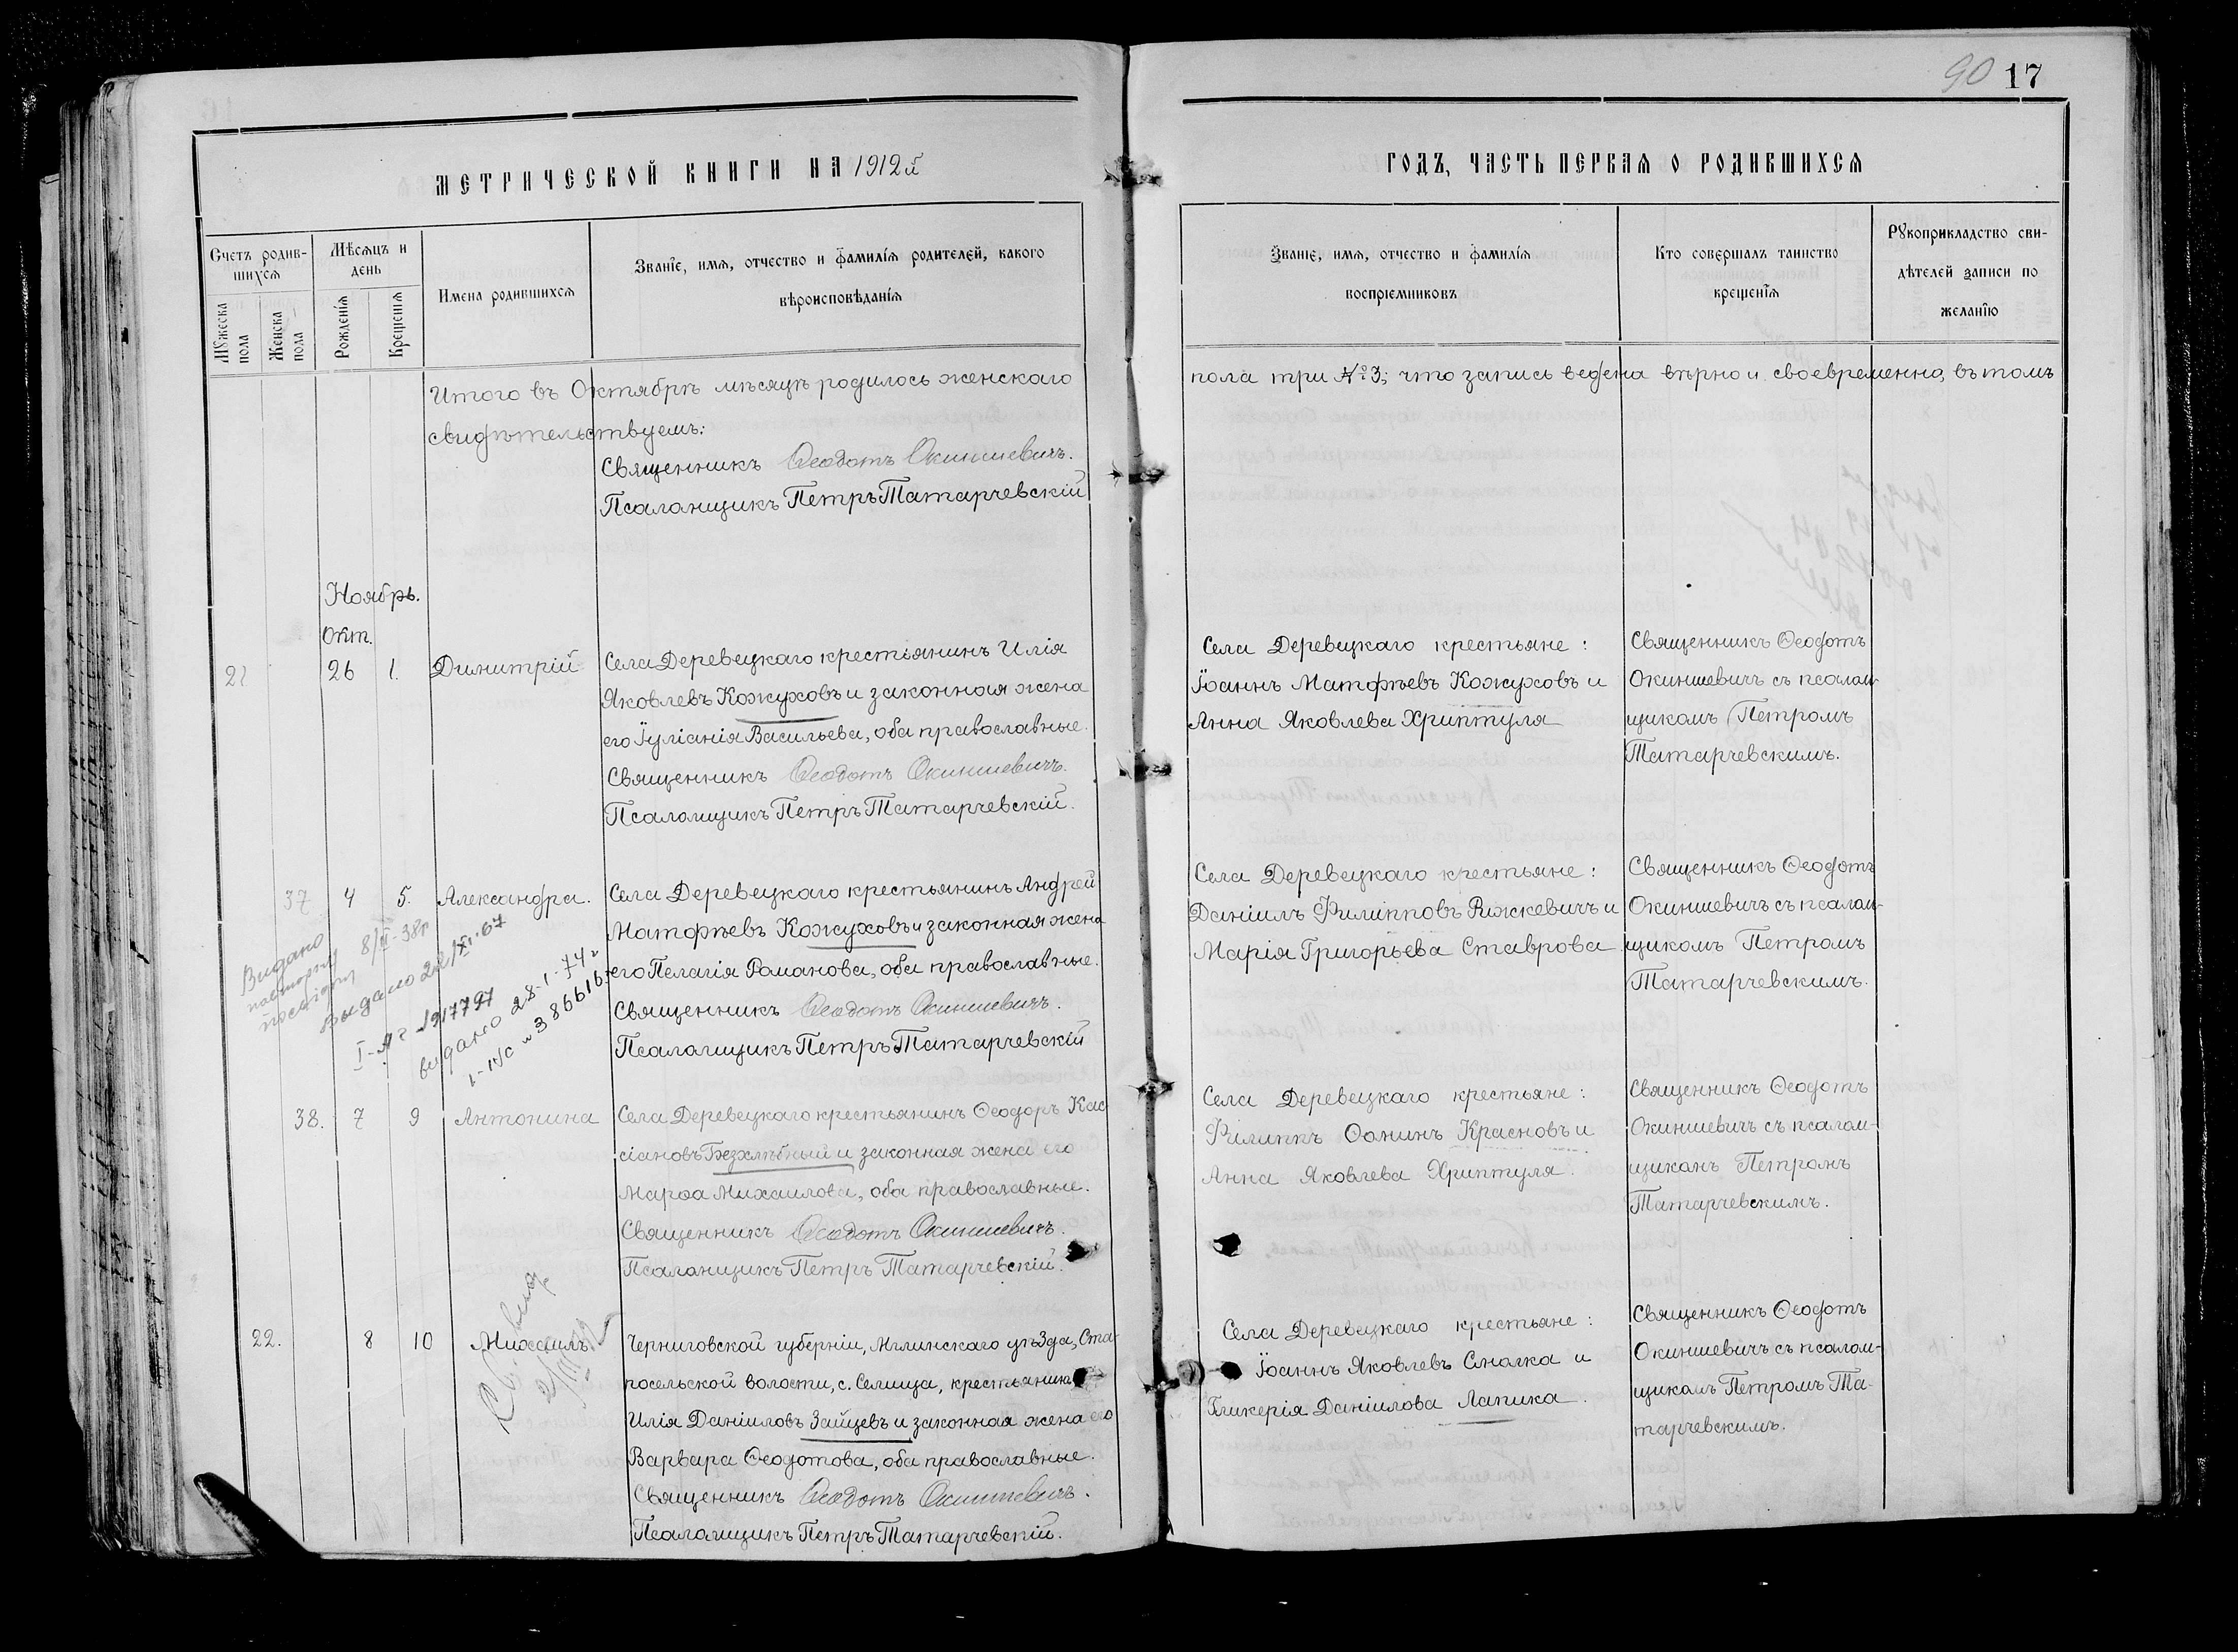 90 17
МЕТРИЧЕСКОЙ КНИГИ НА 1912й
ГОДЪ, ЧАСТЬ ПЕРВАЯ О РОДИВШИХСЯ
Счетъ родив-
шихся
Мужеска
пола
Женска
пола
Мѣсяцъ и
день
Рожденія
Крещенія
Имена родившихся
Званіе, имя, отчество и фамилія родителей, какого
вѣроисповѣданія
Званіе, имя, отчество и фамилія
воспріемниковъ
Кто совершалъ таинство
крещенія
Рукоприкладство сви-
дѣтелей записи по
желанію
Итого въ Октябрѣ мѣсяцѣ родилось женскаго
пола три №3; что запись ведена вѣрно и своевременно, въ томъ
свидѣтельствуемъ:
Священникъ Ѳеодотъ Окиншевичъ.
Псаломщикъ Петръ Татарчевскій
Ноябрь.
Окт.
21 26 1. Димитрій
Села Деревецкаго крестьянинъ Илія
Яковлевъ Кожуховъ и законная жена
его Іуліанія Васильева, оба православные.
Священникъ Ѳеодотъ Окиншевичъ.
Псаломщикъ Петръ Татарчевскій.
Села Деревецкаго крестьяне:
Іоаннъ Матфѣевъ Кожуховъ и
Анна Яковлева Хриптуля
Священникъ Ѳеодотъ
Окиншевичъ съ псалом-
щикомъ Петромъ
Татарчевскимъ.
37 4 5. Александра.
Села Деревецкаго крестьянинъ Андрей
Матфѣевъ Кожуховъ и законная жена
его Пелагія Романова, оба православные.
Священникъ Ѳеодотъ Окиншевичъ.
Псаломщикъ Петръ Татарчевскій
Села Деревецкаго крестьяне:
Даніилъ Филипповъ Рижкевичъ и
Марія Григорьева Ставрова
Священникъ Ѳеодотъ
Окиншевичъ съ псалом-
щикомъ Петромъ
Татарчевскимъ.
Видано
повторну
8/II-38р
Выдано 22/XI.67
видано 28-1-74г
38. 7 9 Антонина
Села Деревецкаго крестьянинъ Ѳеодоръ Кас
сіановъ Безхлѣбный и законная жена его
Марѳа Михаилова, оба православные.
Священникъ Ѳеодотъ Окиншевичъ.
Псаломщикъ Петръ Татарчевскій.
Села Деревецкаго крестьяне:
Филиппъ Ѳоминъ Красновъ и
Анна Яковлева Хриптуля.
Священникъ Ѳеодотъ
Окиншевичъ съ псалом-
щикомъ Петромъ
Татарчевскимъ.
22. 8 10 Михаилъ
Черниговской губерніи, Мглинскаго уѣзда, Ста-
росельской волости, с. Селища, крестьянинъ
Илія Даніиловъ Зайцевъ и законная жена его
Варвара Ѳеодотова, оба православные.
Священникъ Ѳеодотъ Окиншевичъ.
Псаломщикъ Петръ Татарчевскій.
Села Деревецкаго крестьяне:
Іоаннъ Яковлевъ Смалка и
Гликерія Даніилова Лапика.
Священникъ Ѳеодотъ
Окиншевичъ съ псалом-
щикомъ Петромъ Та-
тарчевскимъ.